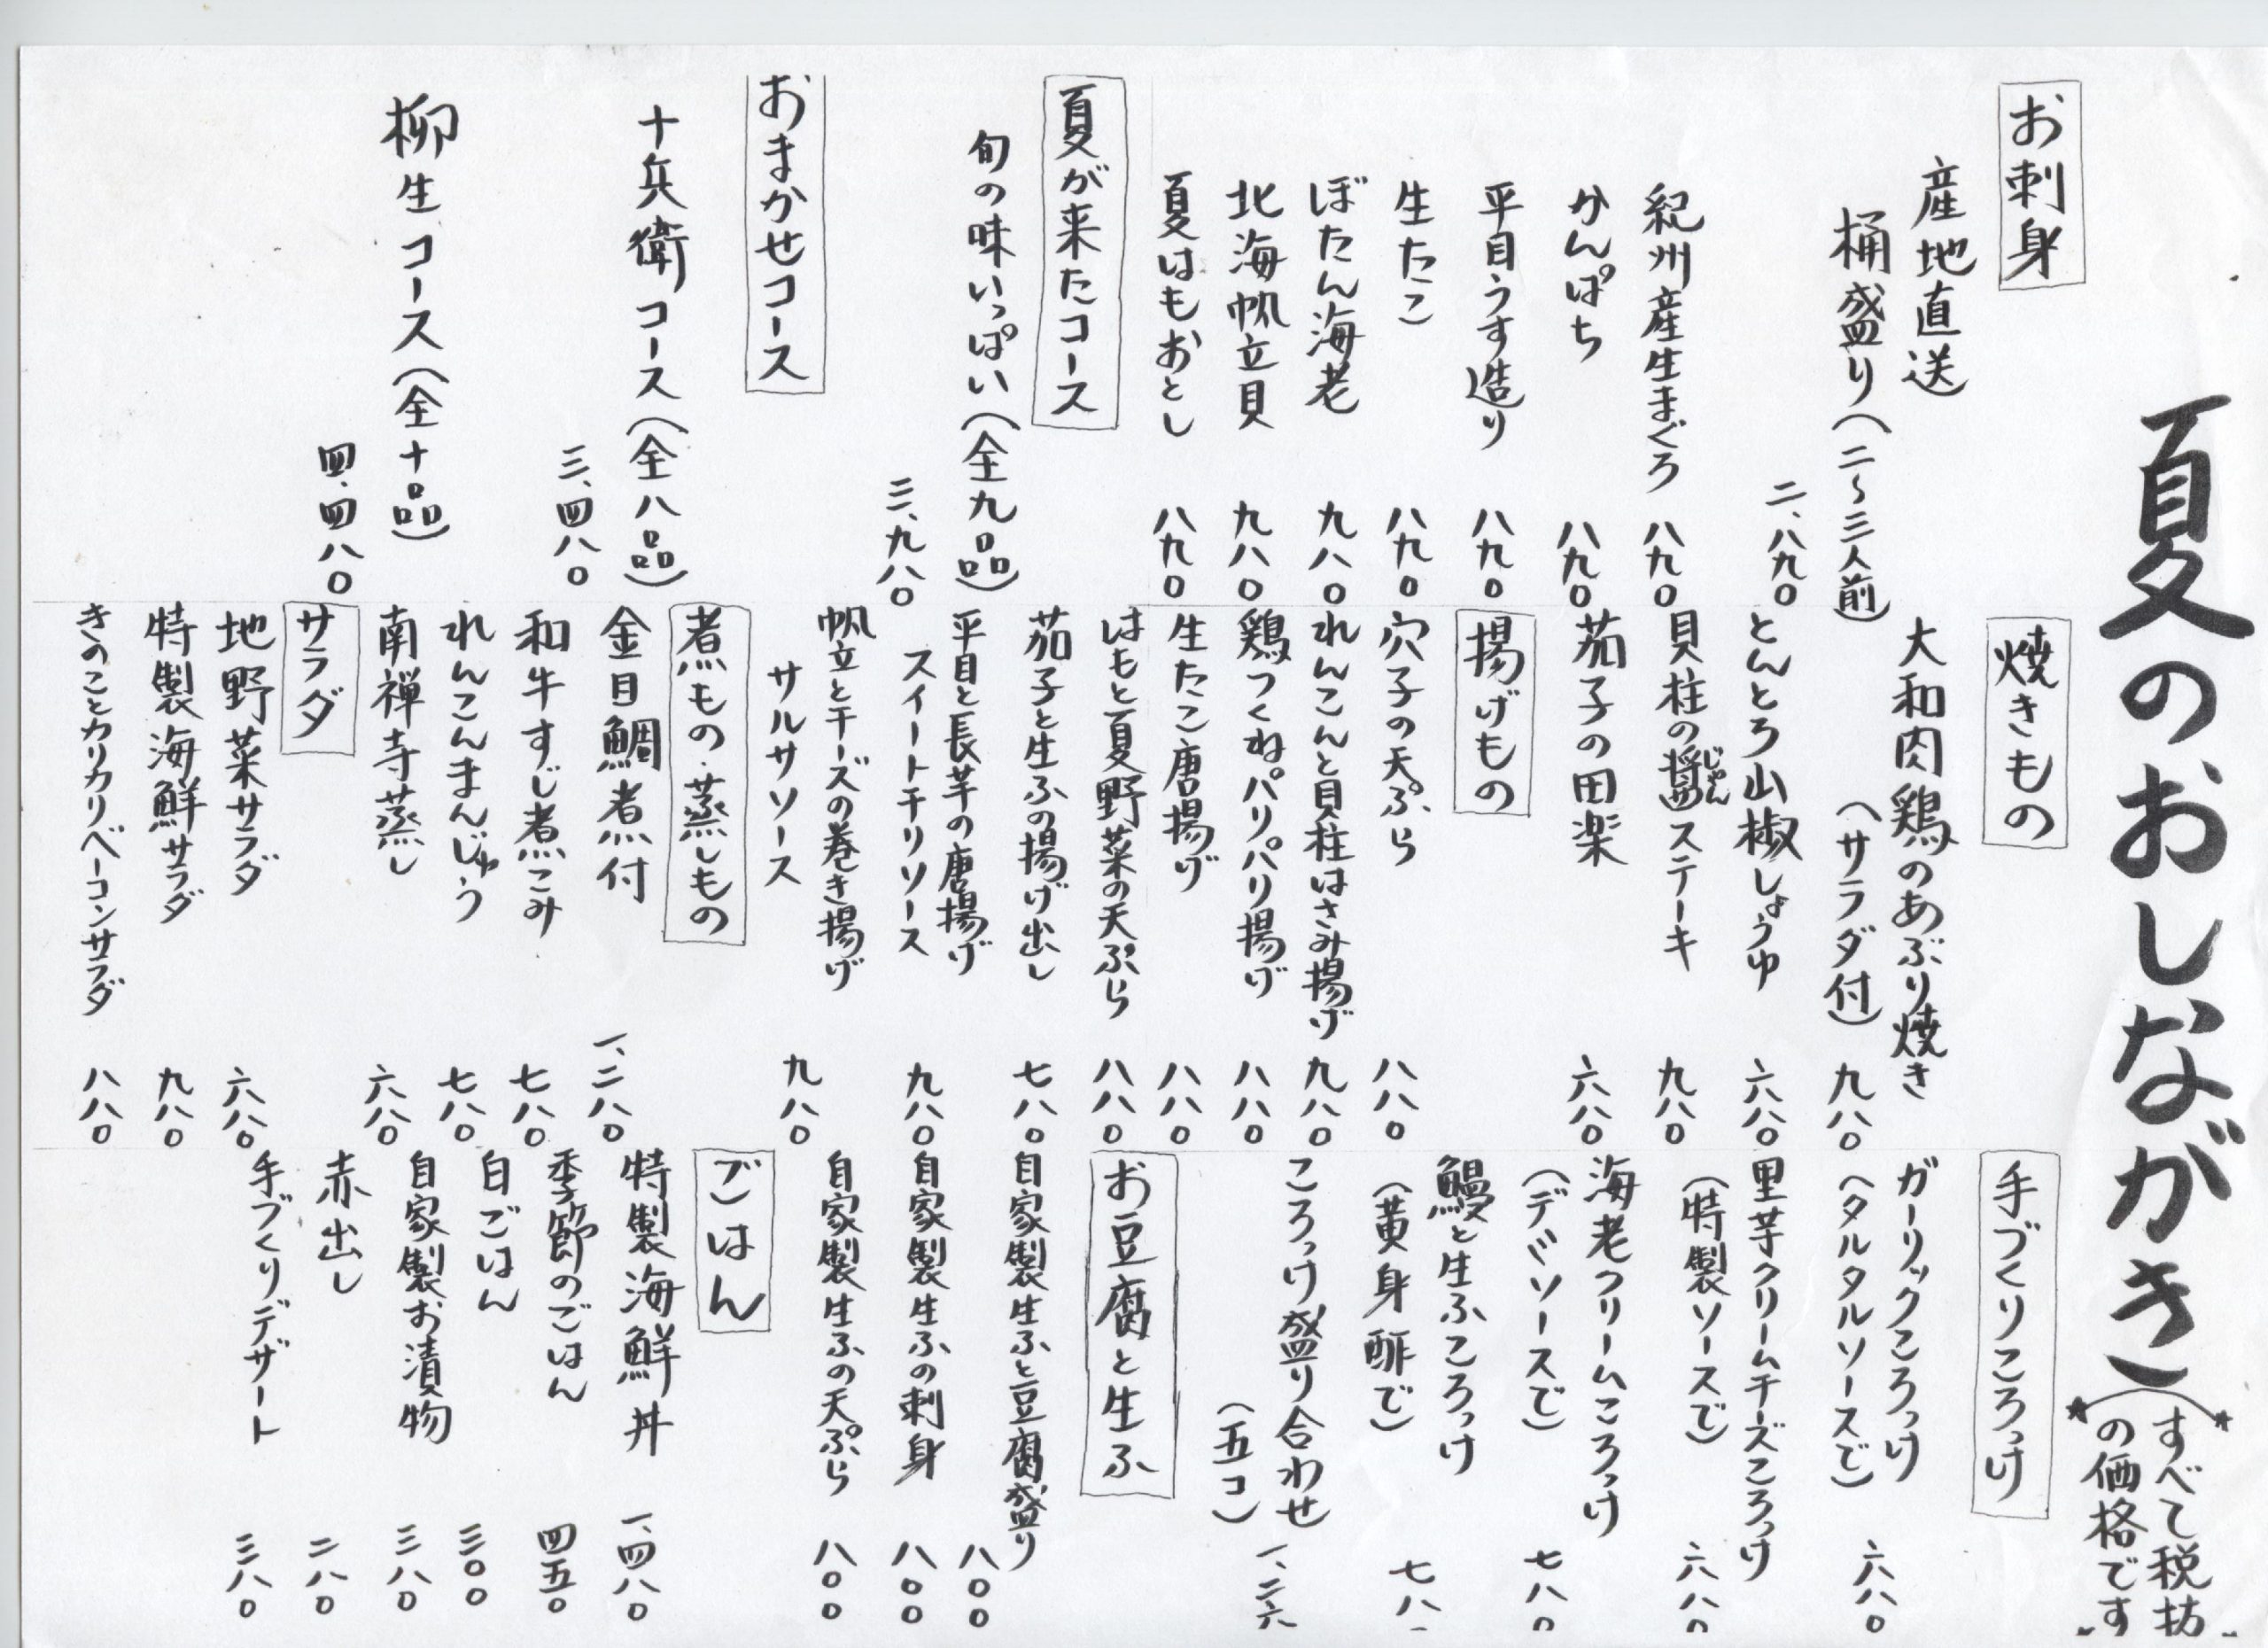 夏のおしながき
すべて税抜
の価格です
お刺身
産地直送
桶盛り(二〜三人前)
二、八九〇
紀州産生まぐろ 八九〇
かんぱち 八九〇
平目うす造り 八九〇
生たこ 八九〇
ぼたん海老 九八〇
北海帆立貝 九八〇
夏はもおとし 八九〇
夏が来たコース
旬の味いっぱい(全九品)
三、九八〇
おまかせコース
十兵衛コース(全八品)
三、四八〇
柳生コース(全十品)
四、四八〇
焼きもの
大和肉鶏のあぶり焼き
(サラダ付) 九八〇
とんとろ山椒しょうゆ 六八〇
貝柱の醤じゃんステーキ 九八〇
茄子の田楽 六八〇
揚げもの
穴子の天ぷら 八八〇
れんこんと貝柱はさみ揚げ 九八〇
鶏つくねパリパリ揚げ 八八〇
生たこ唐揚げ 八八〇
はもと夏野菜の天ぷら 八八〇
茄子と生ふの揚げ出し 七八〇
平目と長芋の唐揚げ
スイートチリソース 九八〇
帆立とチーズの巻き揚げ
サルサソース 九八〇
煮もの・蒸しもの
金目鯛煮付 一、二八〇
和牛すじ煮こみ 七八〇
れんこんまんじゅう 七八〇
南禅寺蒸し 六八〇
サラダ
地野菜サラダ 六八〇
特製海鮮サラダ 九八〇
きのことカリカリベーコンサラダ 八八〇
手づくりころっけ
ガーリックころっけ
(タルタルソースで) 六八〇
里芋クリームチーズころっけ
(特製ソースで) 六八〇
海老クリームころっけ
(デミソースで) 七八〇
鰻と生ふころっけ
(黄身酢で) 七八
ころっけ盛り合わせ
(五コ) 一、二六
お豆腐と生ふ
自家製生ふと豆腐盛り 八〇〇
自家製生ふの刺身 八〇〇
自家製生ふの天ぷら 八〇〇
ごはん
特製海鮮丼 一、四八〇
季節のごはん 四五〇
白ごはん 三〇〇
自家製お漬物 三八〇
赤出し 二八〇
手づくりデザート 三八〇